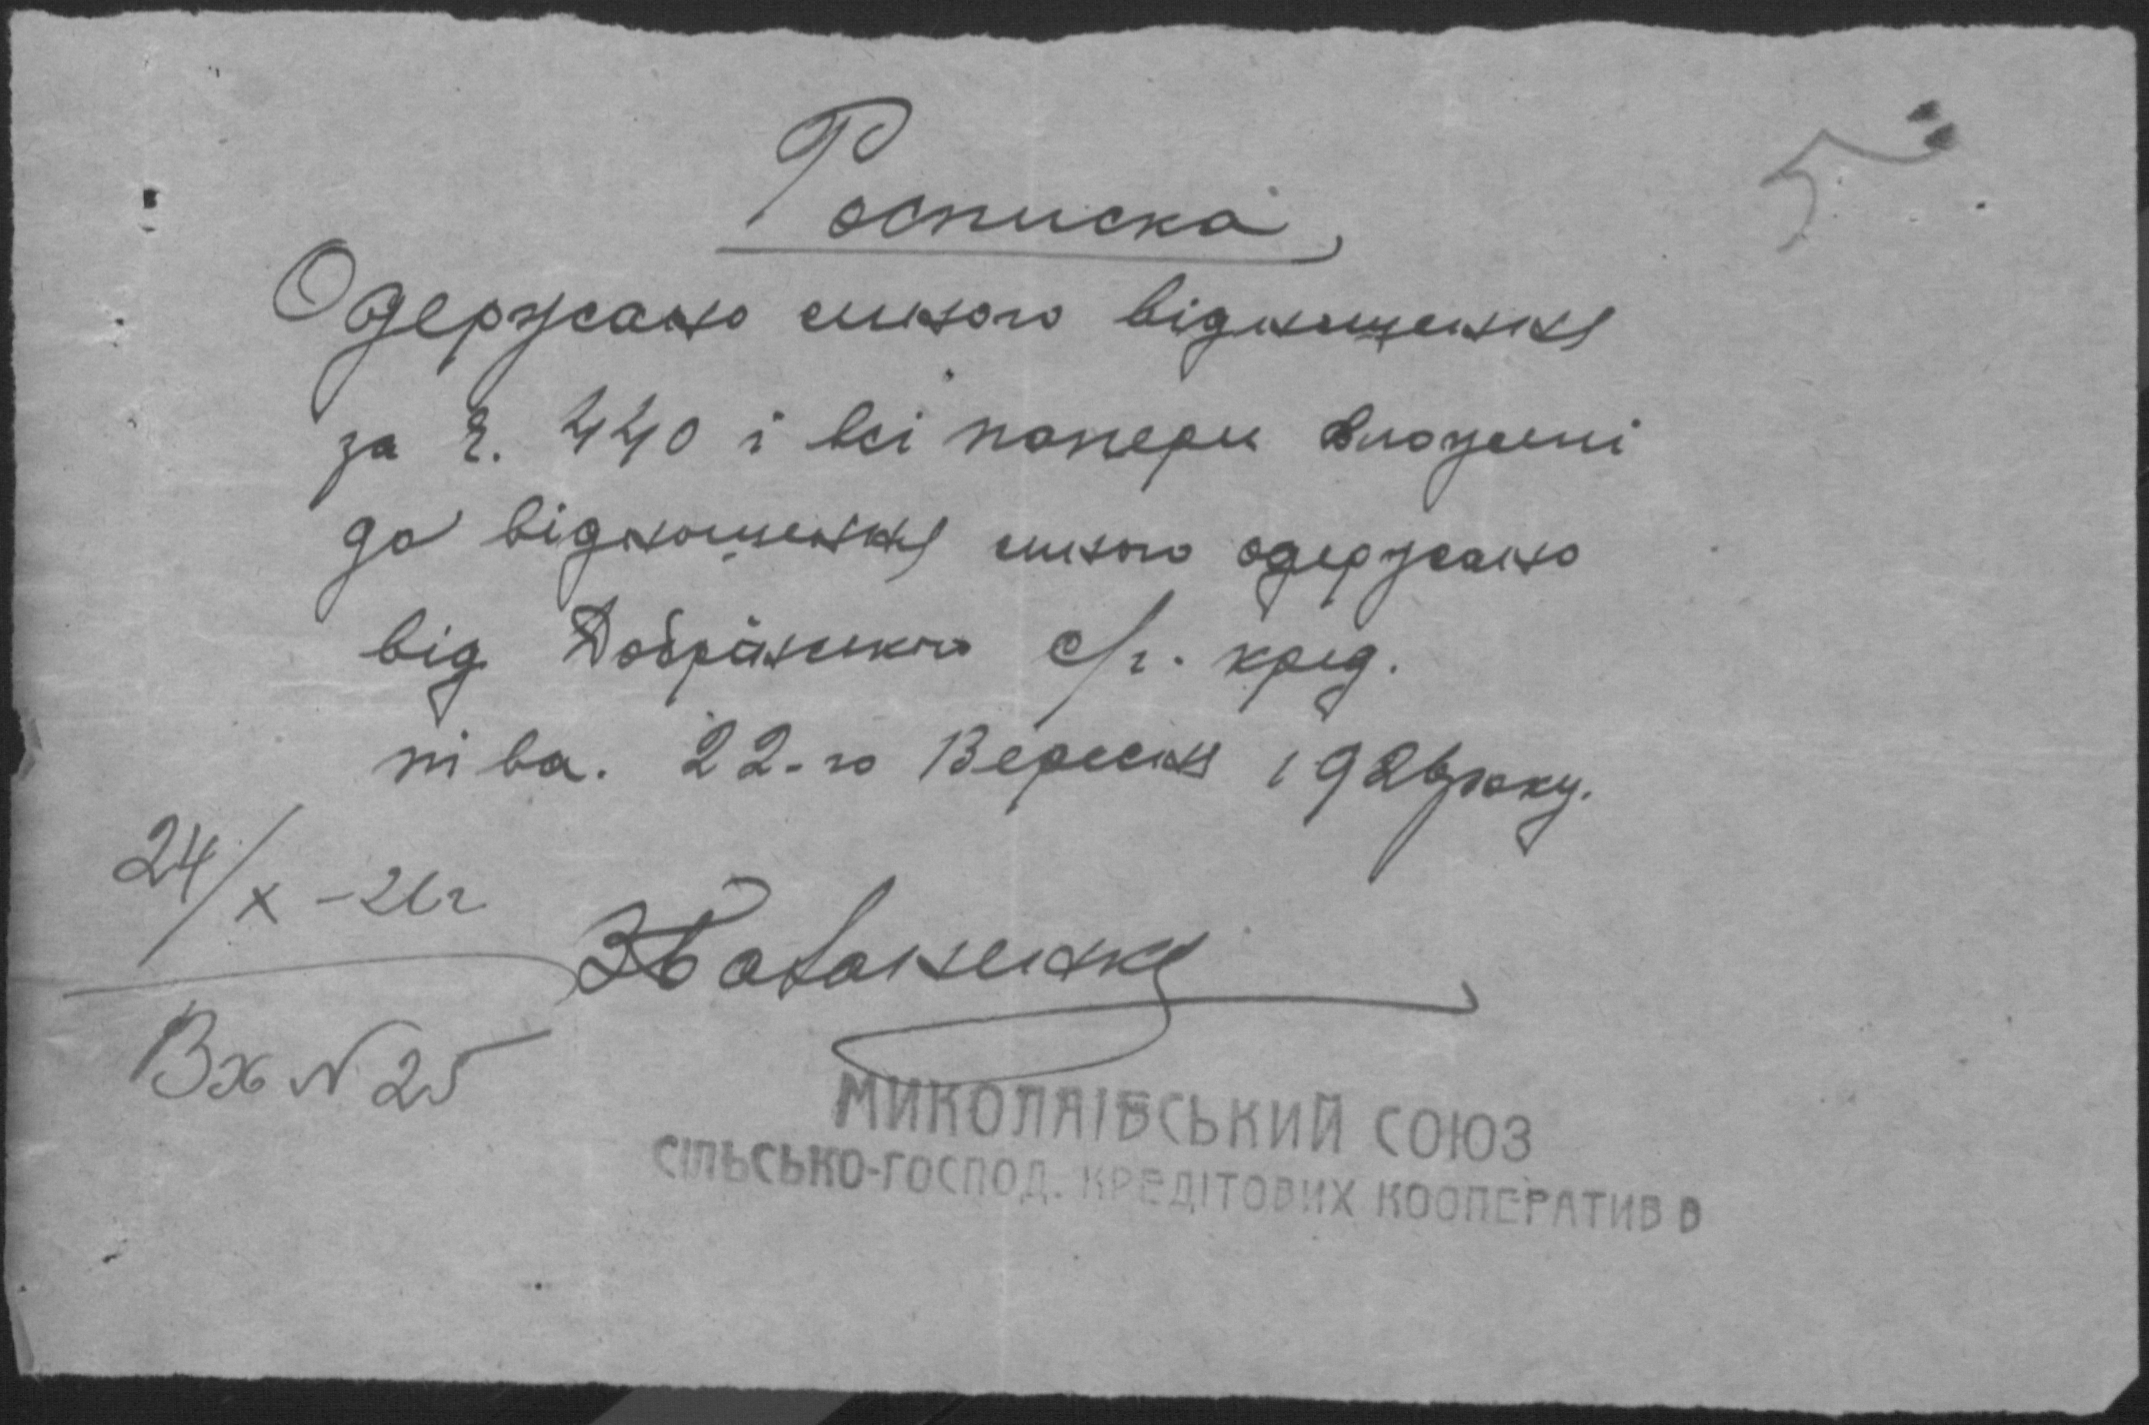 Росписка
Одержано сипого відношення
за Ч. 440 і всі папери вложені
до відношення сипого одержано
від Добрянського с/г. кред.
т ва. 22-го Вересня 1926 року.
24/X – 26 г
Вх N 25
МИКОЛАІВСЬКИЙ СОЮЗ
СІЛЬСЬКО-ГОСПОД. КРЕДІТОВИХ КООПЕРАТИВ В